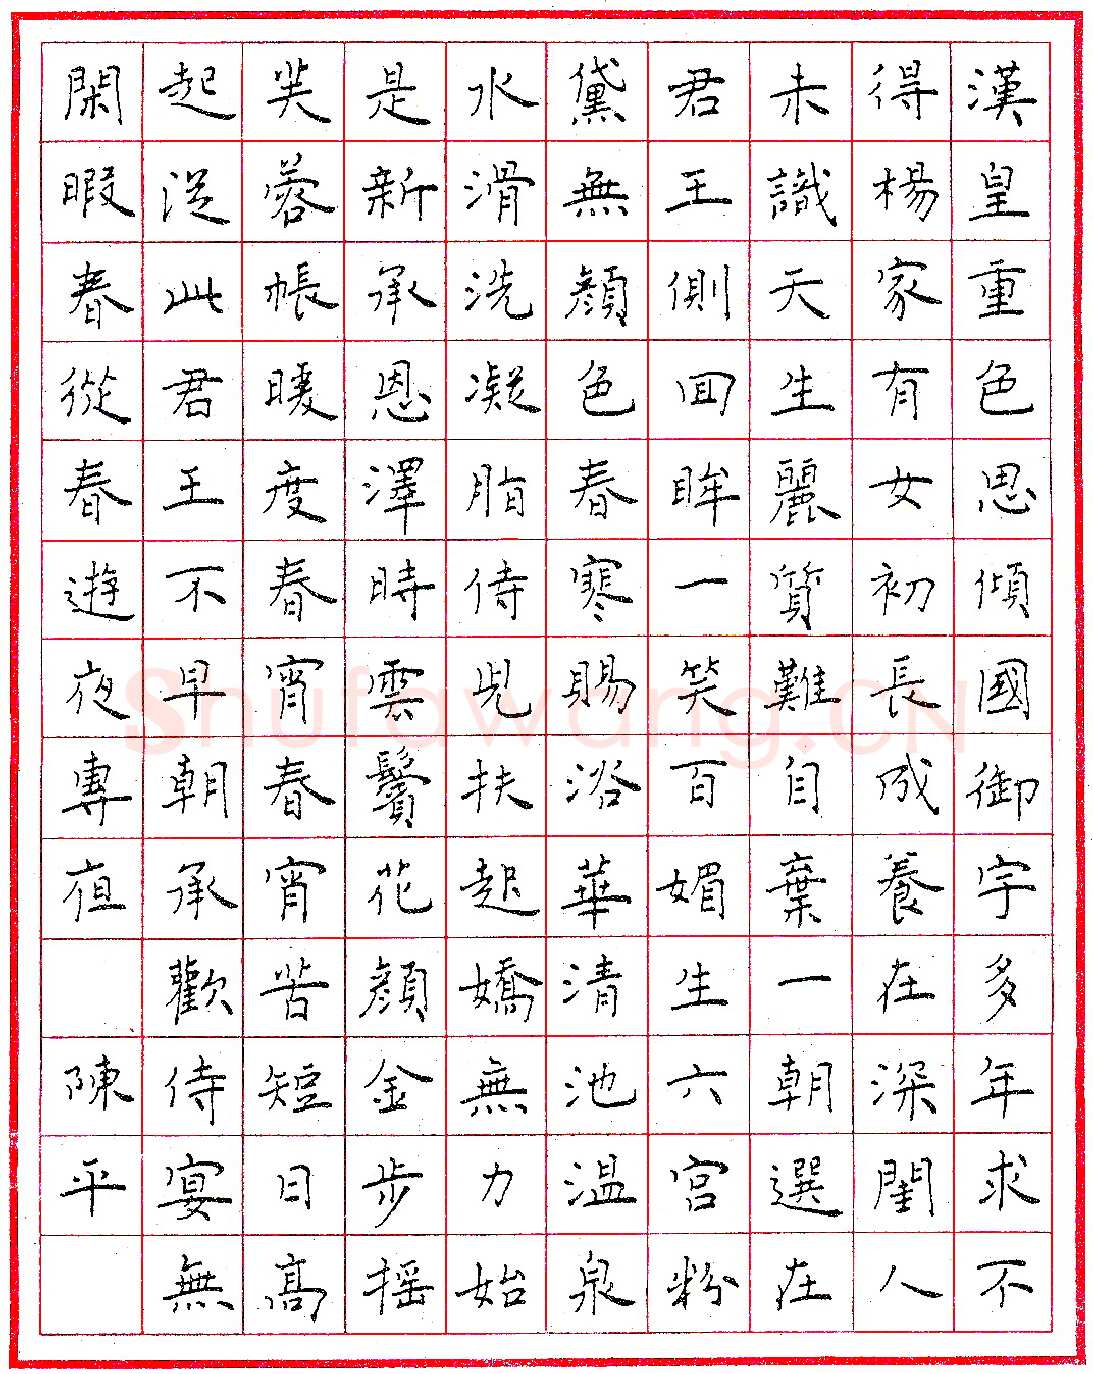 漢皇重色思傾國御宇多年求不
得楊家有女初長成養在深閨人
未識天生麗質難自棄一朝選在
君王側回眸一笑百媚生六宮粉
黛無顔色春寒賜浴華清池温泉
水滑洗凝脂侍兒扶起嬌無力始
是新承恩澤時雲鬢花顔金步摇
芙蓉帳暖度春宵春宵苦短日高
起從此君王不早朝承歡侍宴無
閑暇春從春遊夜專夜 陳平
Shufawang.CN